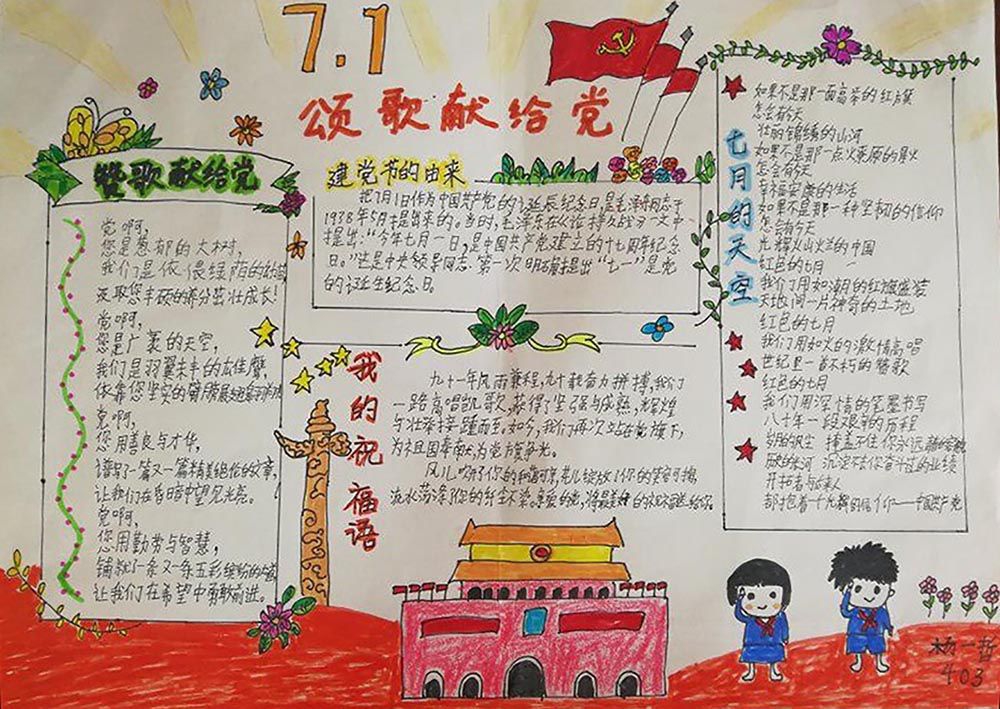 7.1
颂歌献给党
赞歌献给党
党啊,
您是葱郁的大树,
我们是依偎绿荫的幼苗
汲取您丰硕的养分茁壮成长!
党啊,
您是广袤的天空,
我们是羽翼未丰的雄鹰,
依靠您坚实的臂膀
党啊,
您用善良与才华,
谱写了一篇又一篇精美绝伦的文章,
让我们在昏暗中望见光亮。
党啊,
您用勤劳与智慧,
铺就了一条又一条五彩缤纷的
让我们在希望中勇敢前进。
建党节的由来
把7月1日作为中国共产党的诞辰纪念日,是毛泽东同志于
1938年5月提出来的。当时,毛泽东在《论持久战》一文中
提出:“今年七月一日,是中国共产党建立的十七周年纪念
日。”这是中央领导同志第一次明确提出“七一”是党
的诞生纪念日。
我的祝福语
九十一年风雨兼程,九十载奋力拼搏,我们
一路高唱凯歌,获得了坚强与成熟,辉煌
与壮举接踵而至。如今,我们再次站在党旗下,
为祖国奉献,为党旗争光。
风儿吹
流水荡涤你的纤尘不染。亲爱的党,将最美好的祝福送给你。
七月的天空
如果不是那一面高举的红旗
怎会有今天
壮丽锦绣的山河
如果不是那一点火燎原的星火
怎会有今天
幸福安康的生活
如果不是那一种坚韧的信仰
怎会有今天
光耀火山火洋的中国
红色的七月
我们用如潮的红旗盛装
天地间一片神奇的土地
红色的七月
我们用如火的激情高唱
世纪里一首不朽的赞歌
红色的七月
我们用深情的笔墨书写
八十年一段艰辛的历程
掩盖不住你永远
沉淀不去你奋斗过的业绩
开拓者与
中国共产党
杨一哲
403